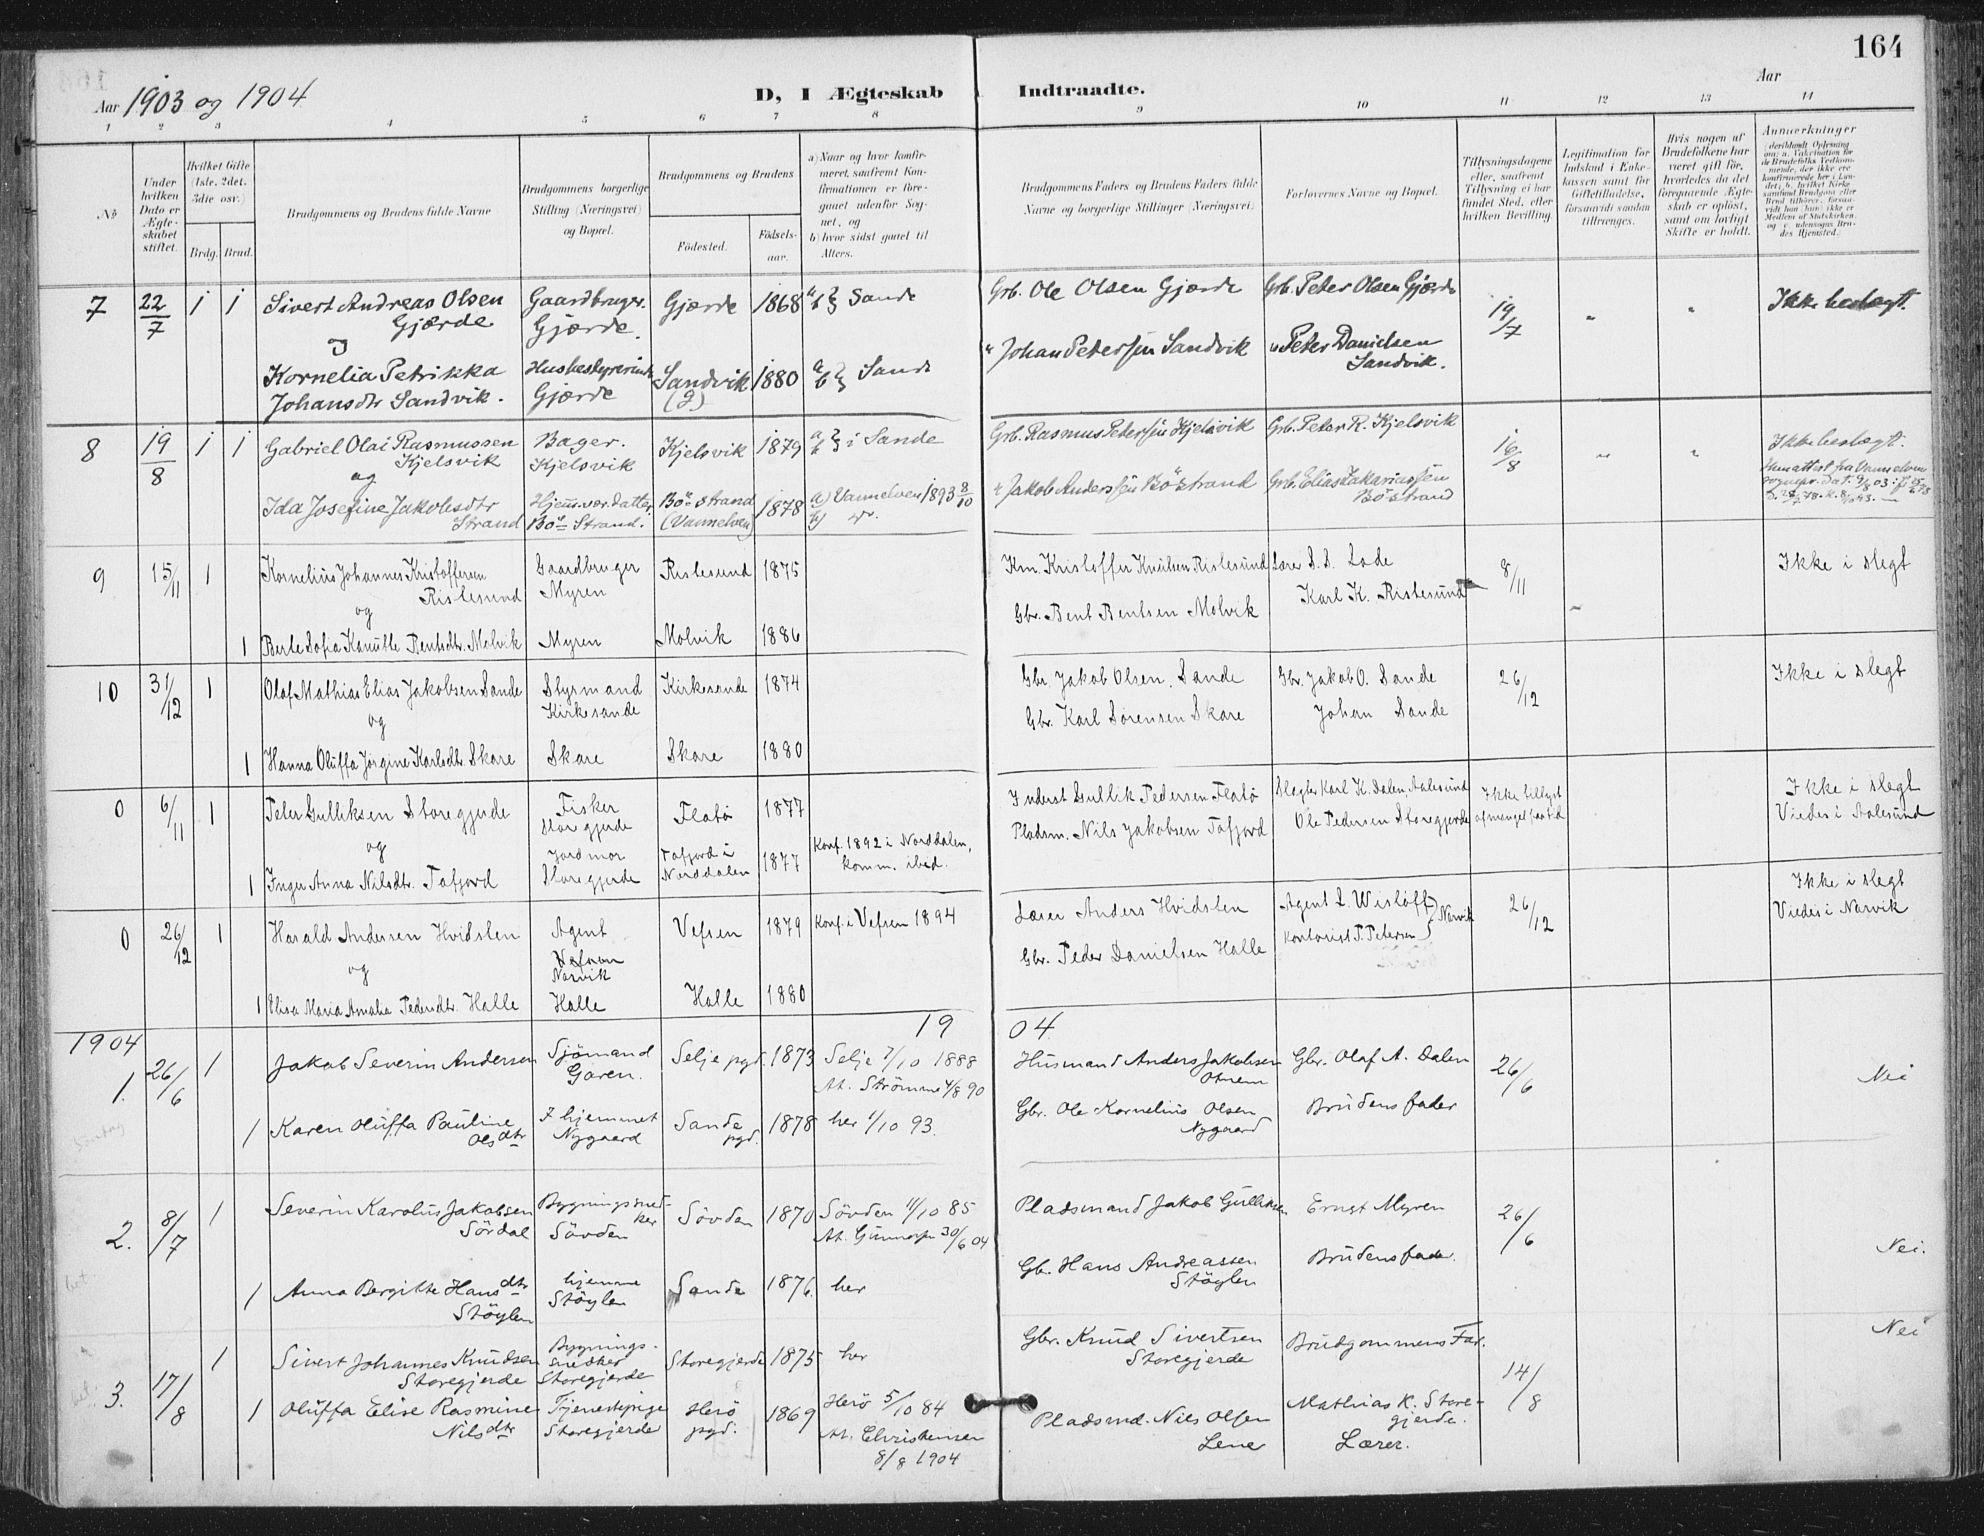 164
Aar 1903 og 1904
D, I Ægteskab Indtraadte.
Aar
1 2 3 4 5 6 7 8 9 10 11 12 13 14
No
Under hvilken Dato er Ægteskabet stiftet.
Hvilket Gifte (1ste, 2det, 3die osv.)
Brdg. Brud.
Brudgommens og Brudens fulde Navne
Brudgommens borgerlige Stilling (Næringsvei) og Bopæl.
Brudgommens og Brudens
Födested.
Födsels-aar.
a) Naar og hvor konfirmeret, saafremt Konfirmationen er foregaaet udenfor Sognet, og
b) hvor sidst gaaet til Alters.
Brudgommens Faders og Brudens Faders fulde Navne og borgerlige Stillinger (Næringsvei)
Forlovernes Navne og Bopæl.
Tillysningsdagene eller, saafremt Tillysning ei har fundet Sted, efter hvilken Bevilling.
Legitimation for Indskud i Enkekassen samt for Giftetilladelse, forsaavidt saadan tiltrænges.
Hvis nogen af Brudefolkene har været gift för, hvorledes da det foregaaende Ægteskab er oplöst, samt om lovligt Skifte er holdt.
Anmerkninger
7 22/7 1 1 Sivert Andreas Olsen Gjærde Gaardbruger. Gjærde. Gjærde 1868 a b } Sande Grb. Ole Olsen Gjærde Grb. Peter Olsen Gjærde 19/7 " " Ikke beslægt.
og
Kornelia Petrikka Johansdtr Sandvik. Husbestyrerinde Gjærde Sandvik (g) 1880 a b } Sande " Johan Petersen Sandvik " Peter Danielsen Sandvik.
8 19/8 1 1 Gabriel Olai Rasmussen Kjelsvik Bager. Kjelsvik Kjelsvik 1879 a b } i Sande Grb. Rasmus Petersen Kjelsvik Grb. Peter R. Kjelsvik 16/8 " " Ikke beslægt.
og
Ida Josefine Jakobsdtr Strand Hjemmev. Datter. Bö Strand. Bö strand (Vannelven) 1878 a) Vannelven 1893 8/10 b) do. " Jakob Anderssen Böstrand Grb. Elias Zakariassen Böstrand
9 15/11 1 Kornelius Johannes Kristoffersen Ristesund Gaardbruger Myren Ristesund 1875 Km. Kristoffer Knutsen Ristesund Lærer S. S. Lade 8/11 Ikke i slegt
og
1 Berte Sofia Kanutte Bentsdtr. Molvik Myren Molvik 1886 Gbr. Bent Bentsen Molvik Karl K. Ristesund
10 31/12 1 Olaf Mathias Elias Jakobsen Sande Styrmand Kirkesande Kirkesande 1874 Gbr. Jakob Olsen Sande Gbr. Jakob O. Sande 26/12 Ikke i slegt
og
1 Hanna Oluffa Jörgine Karlsdtr. Skare Skare Skare 1880 Gbr. Karl Sörensen Skare Johan Sande
0 6/11 1 Peter Gulliksen Storegjerde Fisker Storegjerde Flatö 1877 Inderst Gullik Pedersen Flatö Slagter Karl K. Dalen, Aalesund Ikke tillyst af mangel paa tid Ikke i slegt Viedes i Aalesund
og
1 Inger Anna Nilsdtr. Tafjord Jordmor Storegjerde Tafjord i Norddalen 1877 Konf. 1892 i Norddalen, komm. ibid. Pladsm. Nils Jakobsen Tafjord Ole Pedersen Storegjerde
0 26/12 1 Harald Andersen Hvidsten Agent Narvik Vefsen 1879 Konf. i Vefsen 1894 Lærer Anders Hvidsten Agent L. Wislöff } Narvik 26/12 Ikke i slegt Viedes i Narvik
og
1 Elisa Maria Amalia Pedersdtr. Halle Halle Halle 1880 Gbr. Peder Danielsen Halle Kontorist P. Petersen
1904 19 04
1. 26/6 1 Jakob Severin Andersen Sjömand Garen. Selje pgd. 1873 Selje 7/10 1888 At. Strömme 4/8 90 Husmand Anders Jakobsen Otnem Gbr. Olaf A. Dalen 26/6 Nei
1 Karen Oluffa Pauline Olsdtr I hjemmet Nygaard Sande pgd. 1878 her 1/10 93. Gbr. Ole Kornelius Olsen Nygaard Brudens fader
2. 8/7 1 Severin Karolus Jakobsen Sördal Bygningssnedker Sövden Sövden 1870 Sövden 11/10 85 At. Gunnersen 30/6 04 Pladsmand Jakob Gulliksen Ernst Myren 26/6 Nei.
1 Anna Bergitte Hansdtr Stöylen hjemme Stöylen Sande 1876. her Gb. Hans Andreassen Stöylen Brudens fader.
3. 17/8 1 Sivert Johannes Knudsen Storegjerde Bygnings-snedker Storegjerde Storegjerde 1875 her Gbr. Knud Sivertsen Storegjerde Brudgommens Far. 14/8 Nei
1 Oluffa Elise Rasmine Nilsdtr Tjenestepige Storegjerde Herö pgd. 1869 Herö 5/10 84 At. Christensen 8/8 1904 Pladsmd. Nils Olsen Lene Mathias K. Storegjerde. Lærer.